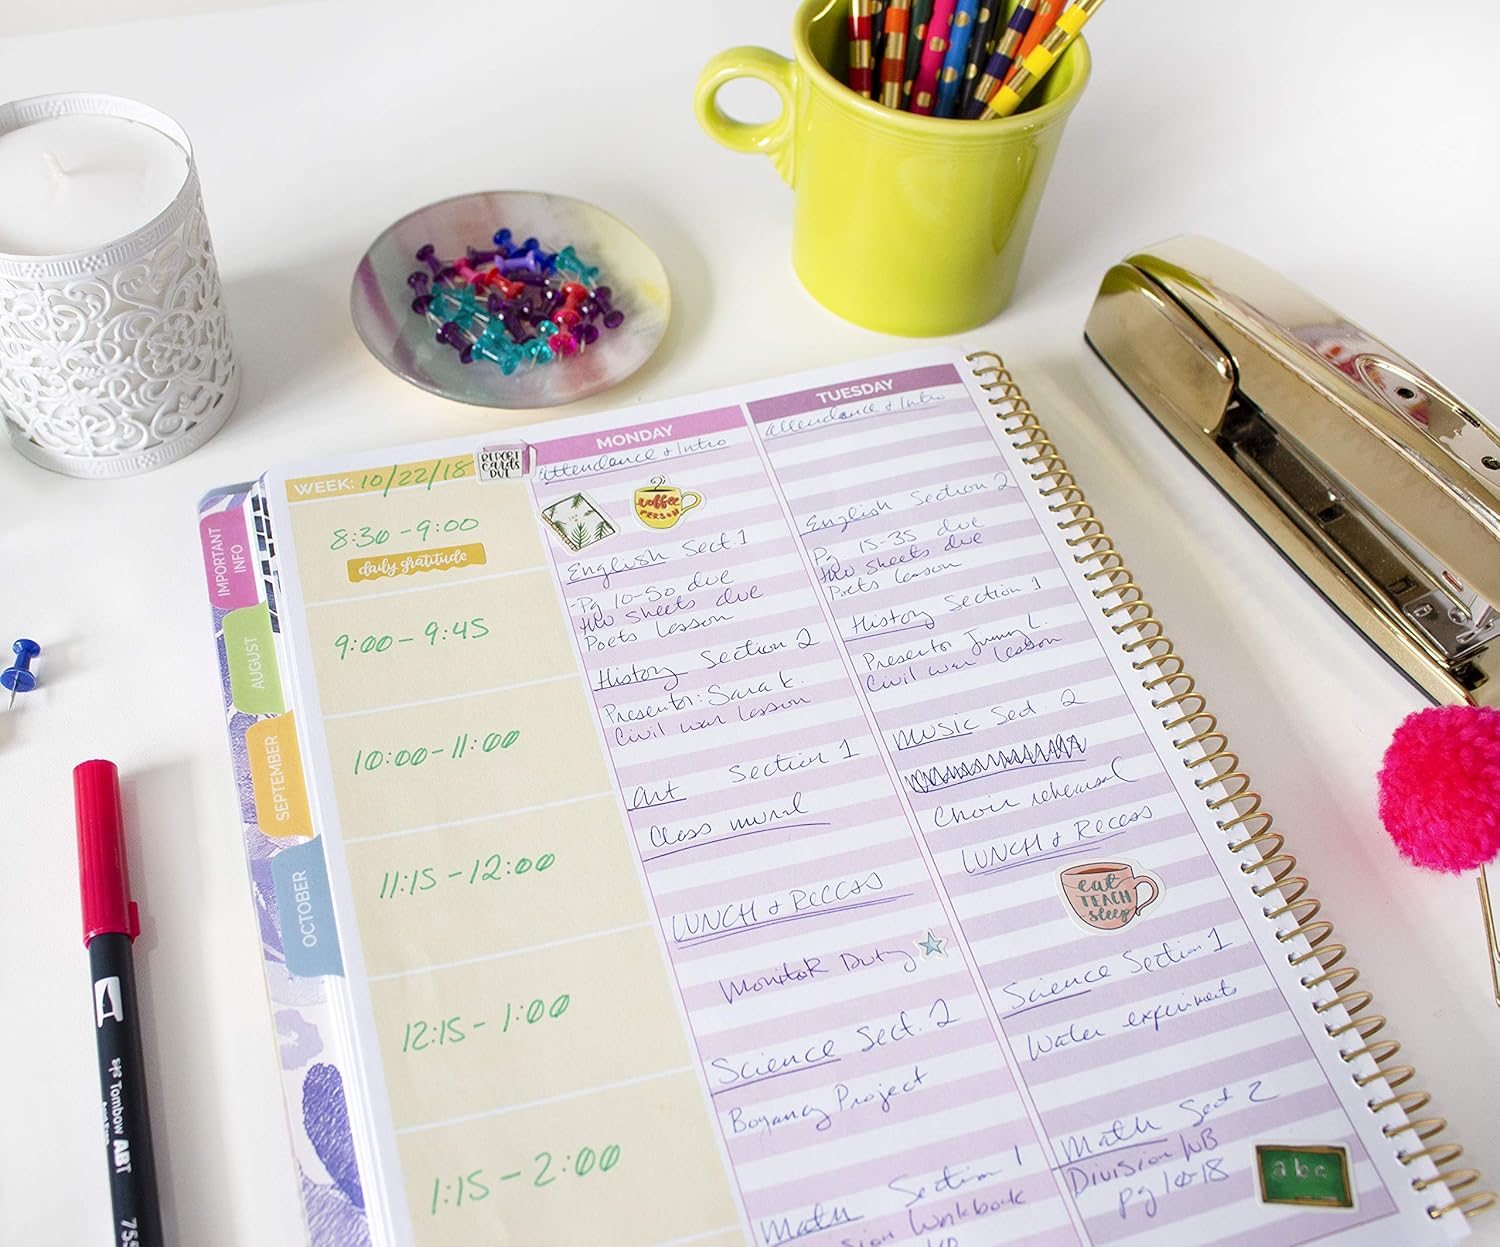 WEEK: 10/22/18
REPORT
Cards
DUE
8:30 - 9:00
daily gratitude
9:00 - 9:45
10:00 - 11:00
11:15 - 12:00
12:15 - 1:00
1:15 - 2:00
MONDAY
Attendance & Intro
coffee
PERSON
English Sect. 1
- Pg 10-50 due
HW Sheets due
Poets Lesson
History Section 2
Presentor: Sara K.
Civil war Lesson
Art Section 1
Class mural
LUNCH & RECESS
Monitor Duty
Science Sect. 2
Boyancy Project
Math Section 1
Workbook
TUESDAY
Attendance & Intro
English Section 2
Pg 15-35 due
HW Sheets due
Poets Lesson
History Section 1
Presentor Jimmy L.
Civil war Lesson
MUSIC Sect 2
Choir rehearsal
LUNCH & Recess
eat
TEACH
sleep
Science Section 1
Water experiments
Math Sect 2
Division WB
pg 10-18
abc
IMPORTANT
INFO
AUGUST
SEPTEMBER
OCTOBER
Tombow ABT